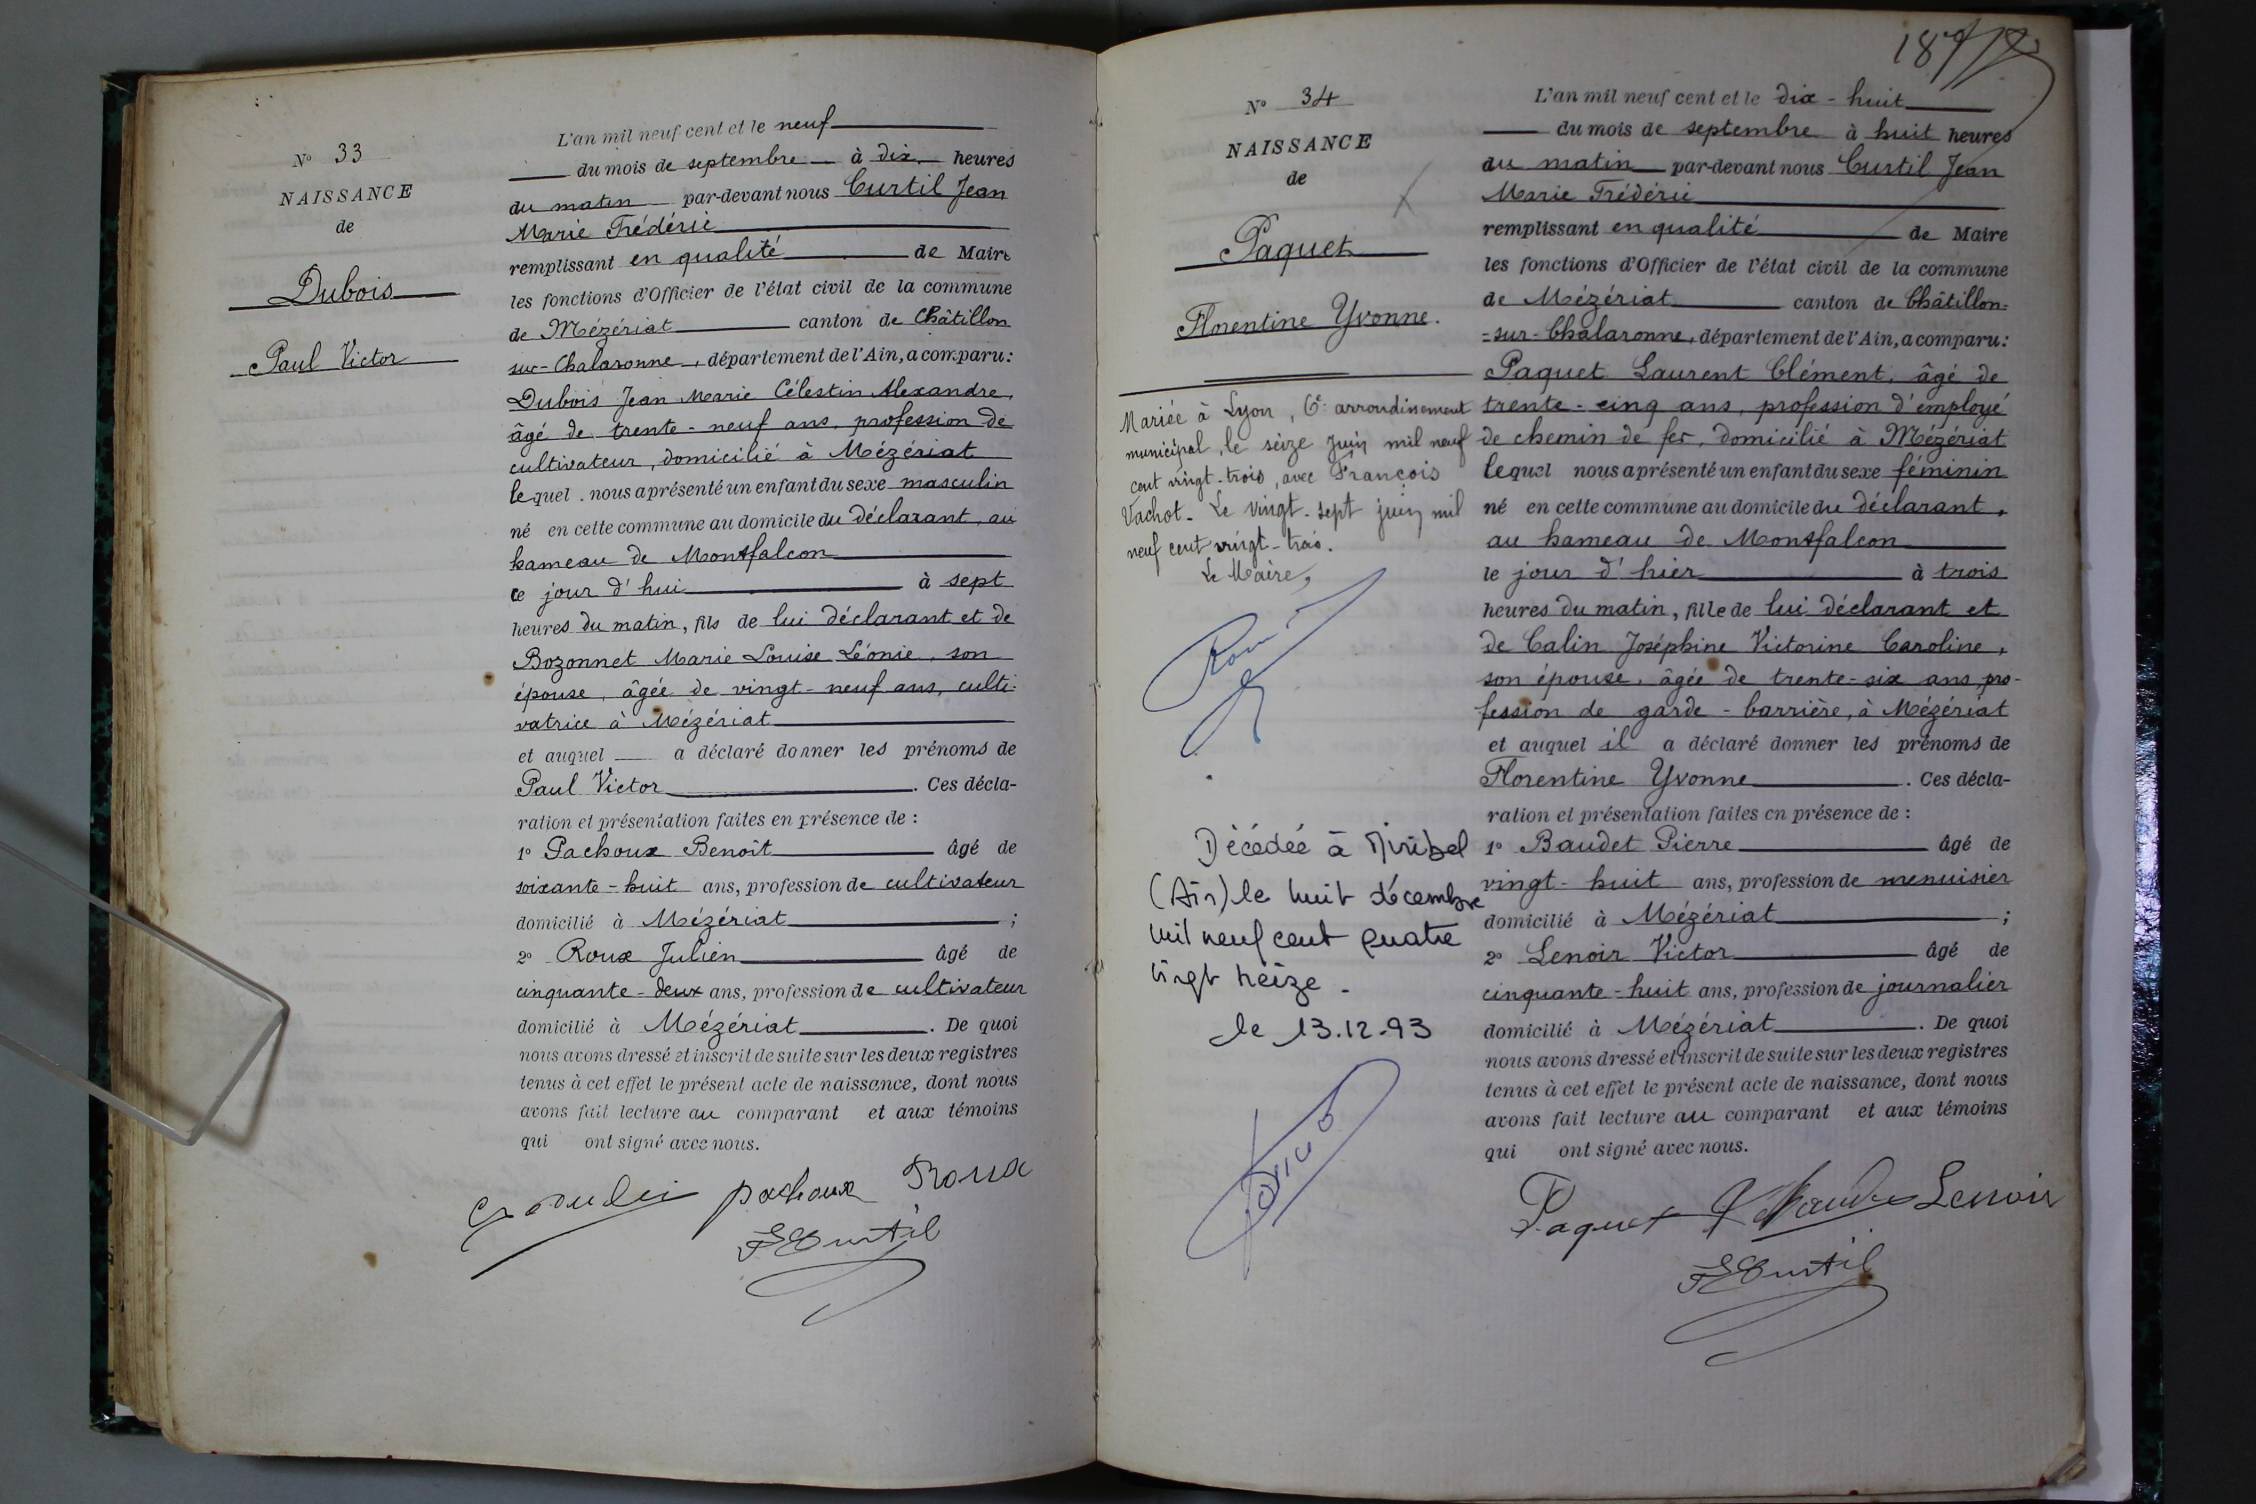 N° 33
NAISSANCE
de
Dubois
Paul Victor
L'an mil neuf cent et le neuf
du mois de septembre à dix heures
du matin par-devant nous Curtil Jean
Marie Frédéric
remplissant en qualité de Maire
les fonctions d'Officier de l'état civil de la commune
de Mézériat canton de Châtillon
sur-Chalaronne, département de l'Ain, a comparu:
Dubois Jean Marie Célestin Alexandre,
âgé de trente-neuf ans, profession de
cultivateur, domicilié à Mézériat
lequel nous a présenté un enfant du sexe masculin
né en cette commune au domicile du déclarant, au
hameau de Montfalcon
ce jour d'hui à sept
heures du matin, fils de lui déclarant et de
Bozonnet Marie Louise Léonie, son
épouse, âgée de vingt-neuf ans, culti-
vatrice à Mézériat
et auquel a déclaré donner les prénoms de
Paul Victor. Ces décla-
ration et présentation faites en présence de :
1° Pachoux Benoit âgé de
soixante-huit ans, profession de cultivateur
domicilié à Mézériat ;
2° Roux Julien âgé de
cinquante-deux ans, profession de cultivateur
domicilié à Mézériat. De quoi
nous avons dressé et inscrit de suite sur les deux registres
tenus à cet effet le présent acte de naissance, dont nous
avons fait lecture au comparant et aux témoins
qui ont signé avec nous.
pachoux Roux
Curtil
N° 34
NAISSANCE
de
Paquet
Florentine Yvonne.
Mariée à Lyon, 6e arrondissement
municipal, le seize juin mil neuf
cent vingt-trois, avec François
Vachot. Le vingt-sept juin mil
neuf cent vingt-trois.
Le Maire,
Décédée à Miribel
(Ain) le huit décembre
mil neuf cent quatre
vingt treize.
le 13.12.93
L'an mil neuf cent et le dix-huit
du mois de septembre à huit heures
du matin par-devant nous Curtil Jean
Marie Frédéric
remplissant en qualité de Maire
les fonctions d'Officier de l'état civil de la commune
de Mézériat canton de Châtillon-
-sur-Chalaronne, département de l'Ain, a comparu:
Paquet Laurent Clément, âgé de
trente-cinq ans, profession d'employé
de chemin de fer, domicilié à Mézériat
lequel nous a présenté un enfant du sexe féminin
né en cette commune au domicile du déclarant,
au hameau de Montfalcon
le jour d'hier à trois
heures du matin, fille de lui déclarant et
de Calin Joséphine Victorine Caroline,
son épouse, âgée de trente-six ans, pro-
fession de garde-barrière, à Mézériat
et auquel il a déclaré donner les prénoms de
Florentine Yvonne. Ces décla-
ration et présentation faites en présence de :
1° Baudet Pierre âgé de
vingt-huit ans, profession de menuisier
domicilié à Mézériat ;
2° Lenoir Victor âgé de
cinquante-huit ans, profession de journalier
domicilié à Mézériat. De quoi
nous avons dressé et inscrit de suite sur les deux registres
tenus à cet effet le présent acte de naissance, dont nous
avons fait lecture au comparant et aux témoins
qui ont signé avec nous.
Paquet Lenoir
Curtil